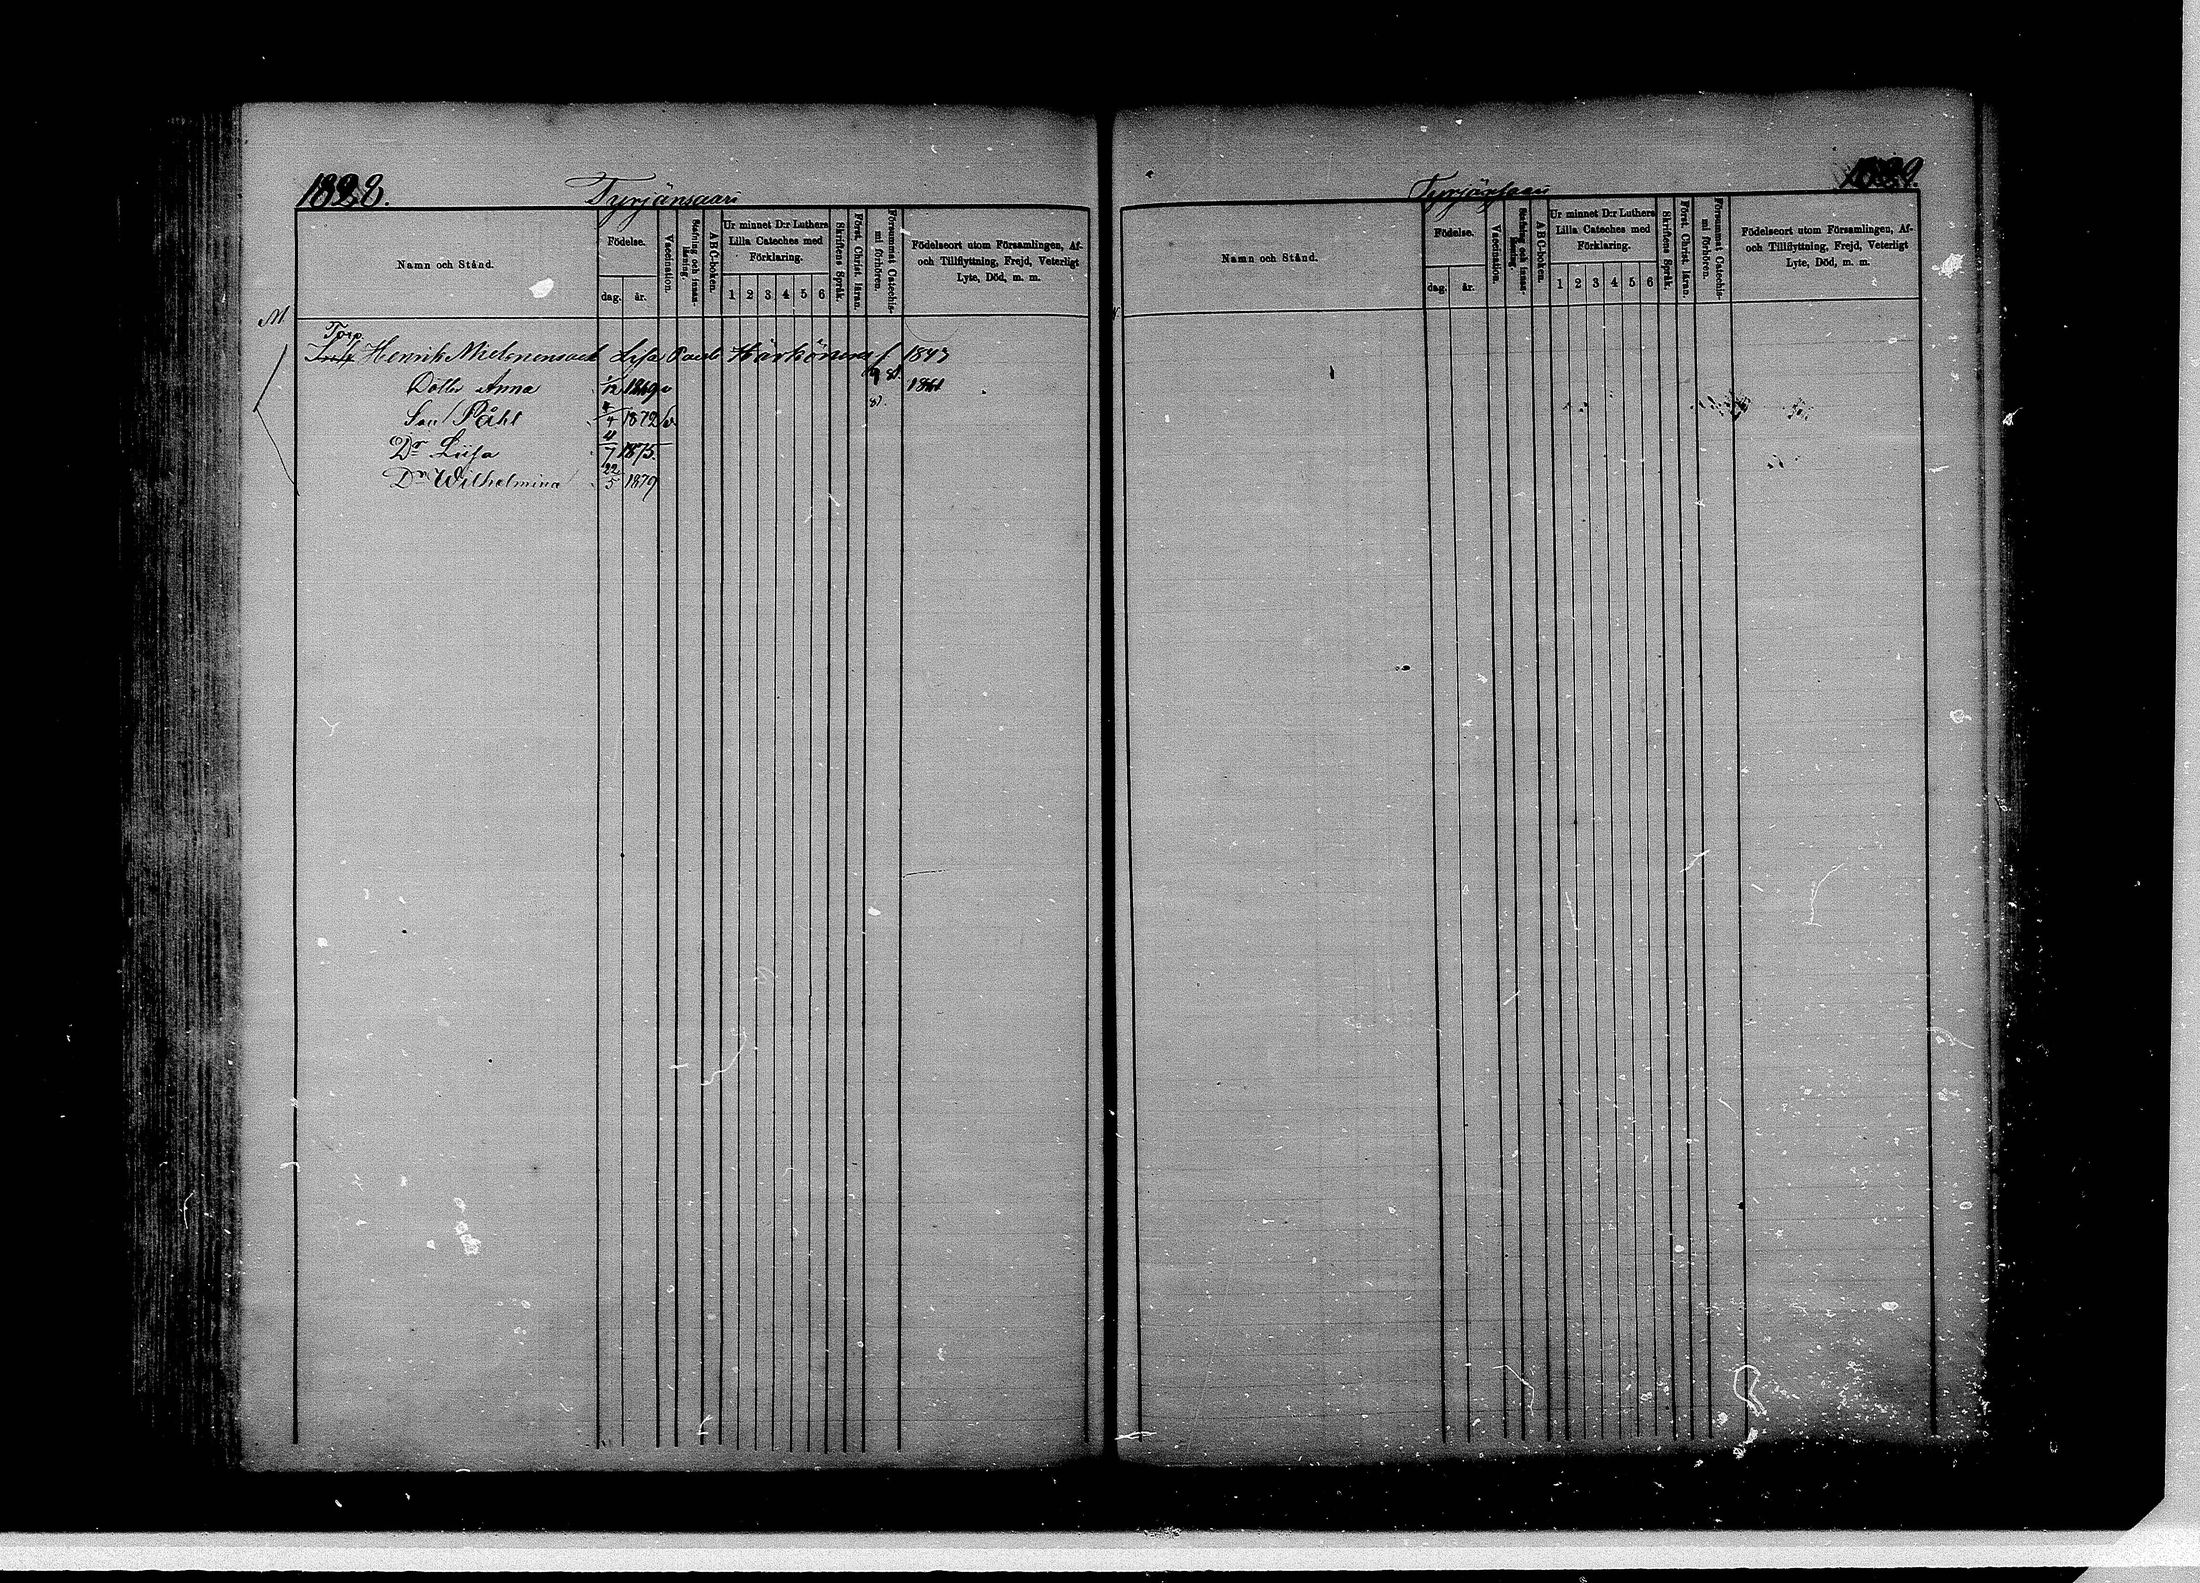 1828.
Tyrjänsaari
Namn och Stånd.
Födelse.
dag. år.
Vaccination.
Stafning och innan-läsning.
ABC-boken.
Ur minnet D:r Luthers
Lilla Cateches med
Förklaring.
1 2 3 4 5 6
Skriftens Språk.
Först. Christ. läran.
Försummat Catechis-
mi förhören.
Födelseort utom Församlingen, Af-
och Tillflyttning, Frejd, Veterligt
Lyte, Död, m. m.
M
Torp.
Henrik Lisa Härkönen f 1843
Dotter Anna 1/12 1869 v
Son Påhl 1872 v
Dr Liisa 4/7 1875.
Dr Wilhelmina 22/5 1879
1829.
Tyrjänsaari
Namn och Stånd.
Födelse.
dag. år.
Vaccination.
Stafning och innan-läsning.
ABC-boken.
Ur minnet D:r Luthers
Lilla Cateches med
Förklaring.
1 2 3 4 5 6
Skriftens Språk.
Först. Christ. läran.
Försummat Catechis-
mi förhören.
Födelseort utom Församlingen, Af-
och Tillflyttning, Frejd, Veterligt
Lyte, Död, m. m.